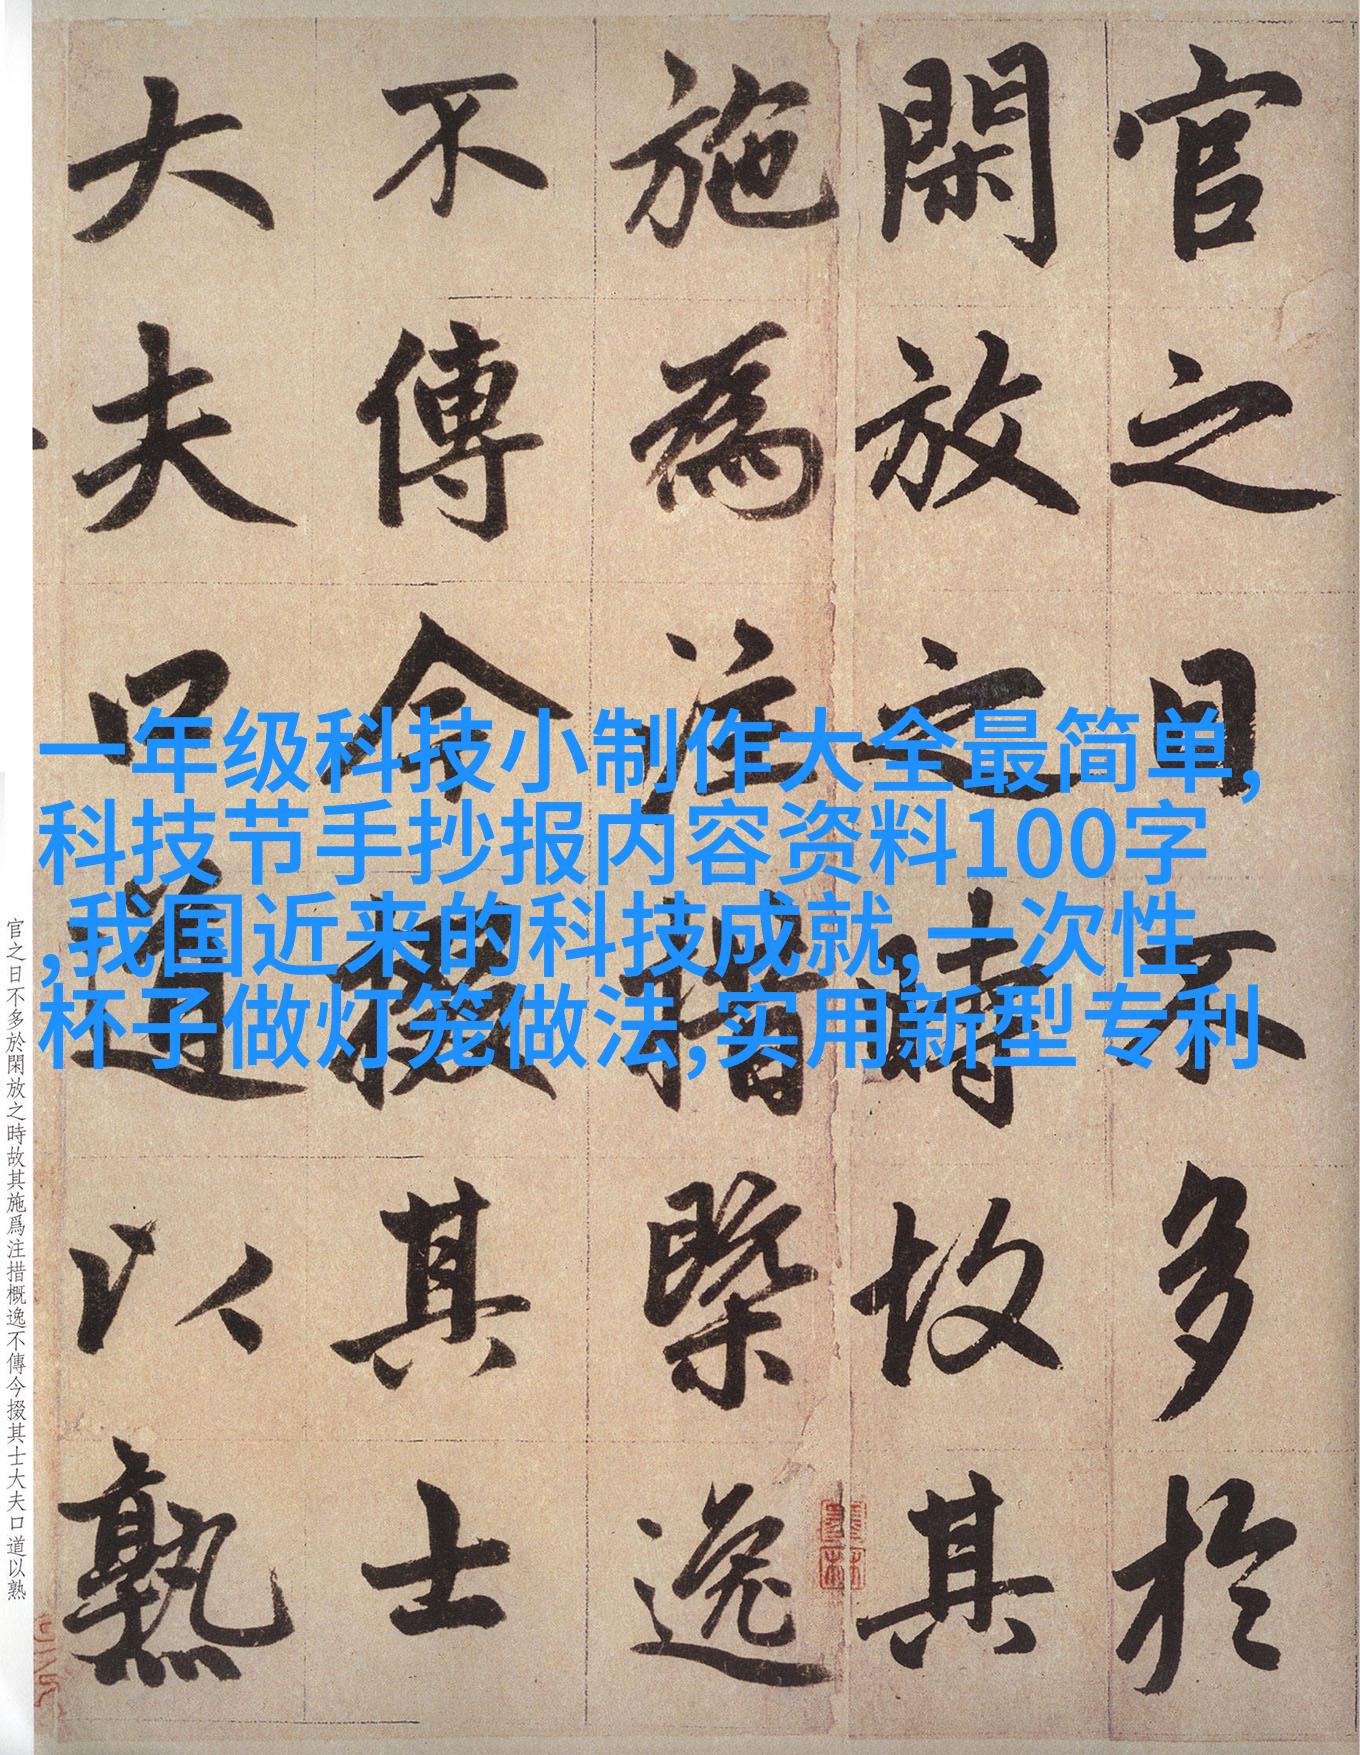 官之日不多於
閑放之時故其
施為注措槩逸
不傳今掇其士
大夫口道以熟
一年级科技小制作大全最简单,
科技节手抄报内容资料100字
,我国近来的科技成就,一次性
杯子做灯笼做法,实用新型专利
官之日不多於閑放之時故其施爲注措概逸不傳今掇其士大夫口道以熟